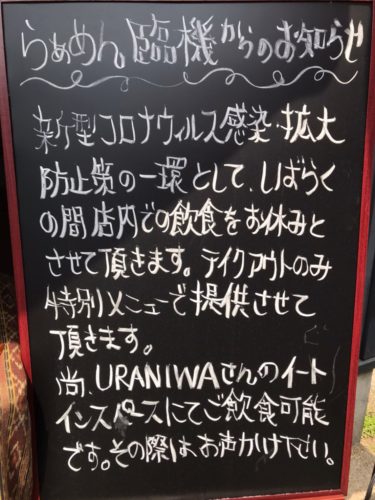 らぁめん。臨機からのお知らせ
新型コロナウィルス感染・拡大
防止策の一環として、しばらく
の間店内での飲食をお休みと
させて頂きます。テイクアウトのみ
特別メニューで提供させて
頂きます。
尚、URANIWAさんのイート
インスペースにてご飲食可能
です。その際は、お声かけ下さい。